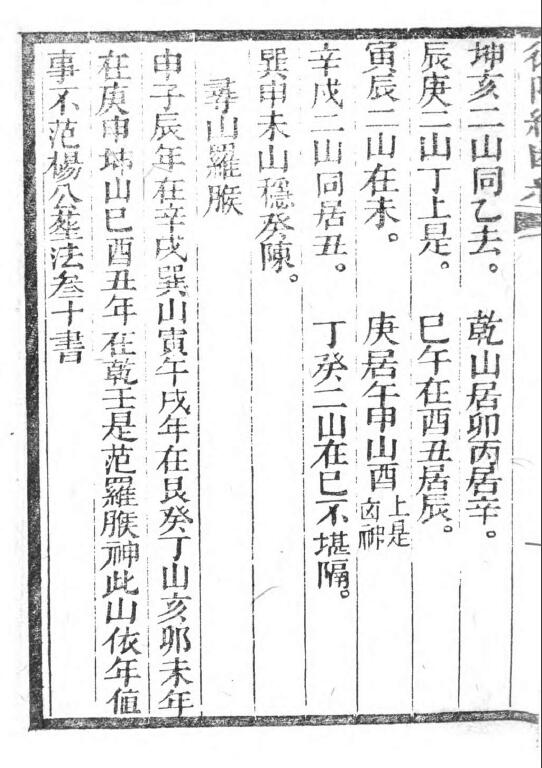 坤亥二山同乙去。 乾山居卯丙居辛。
辰庚二山丁上是。 巳午在酉丑居辰。
寅辰二山在未。 庚居午申山酉上是凶神
辛戌二山同居丑。 丁癸二山在巳不堪隔。
巽申未山穩癸陳。
尋山羅睺
申子辰年在辛戌巽山寅午戌年在艮癸丁山亥卯未年
在庚申坤山巳酉丑年在乾壬是范羅睺神此山依年值
事不范楊公葬法叁十書